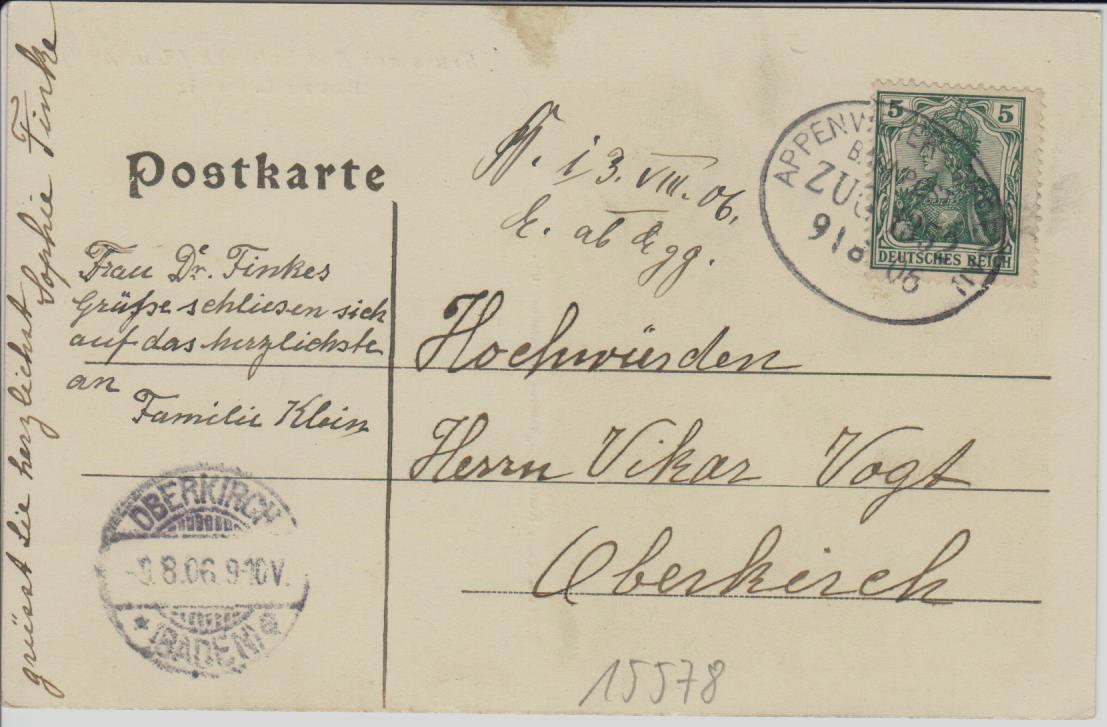 Postkarte
Frau Dr. Finkes
Grüße schliesen sich
auf das herzlichste
an
Familie Klein
grüsst Sie herzlichst Sophie Finke
13. VIII. 06.
ab
Hochwürden
Herrn Vikar Vogt
Oberkirch
5 5
DEUTSCHES REICH
APPENW
ZUG
9 8 06
OBERKIRCH
8.06.9-10V.
* (BADEN) a
15578